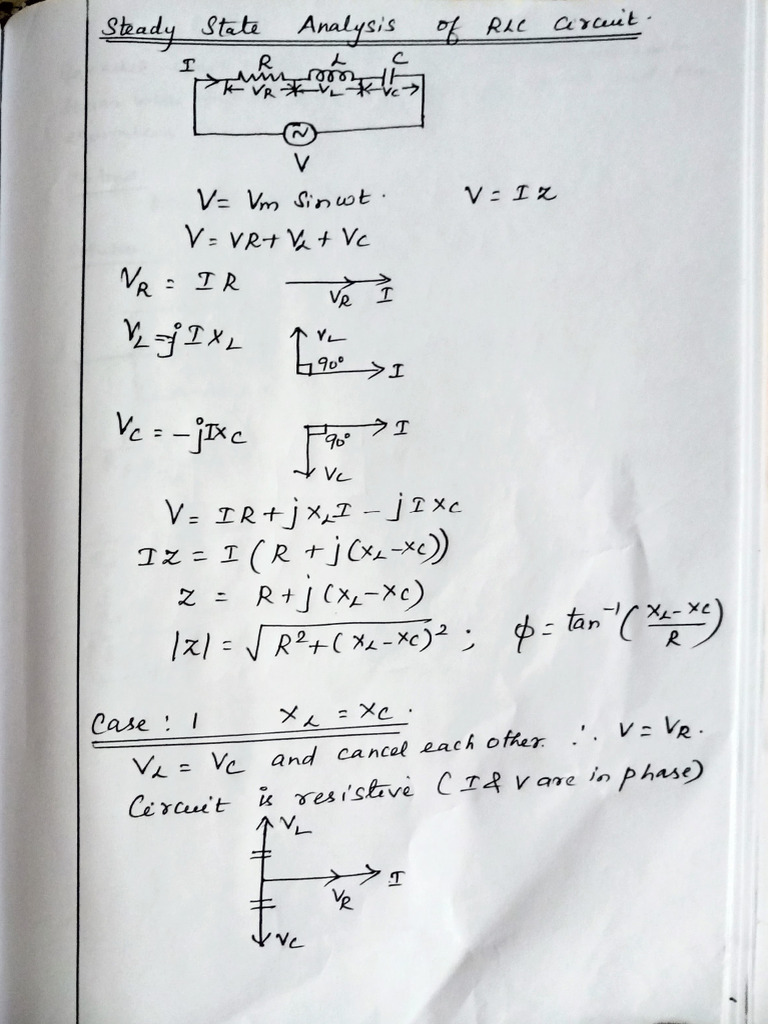 Steady State Analysis of RLC Circuit.
I R L C
VR VL VC
V
V = Vm Sin ωt. V = IZ
V = VR + VL + VC
VR = IR VR I
VL = jIXL VL 90° I
VC = -jIXC 90° I VC
V = IR + jXLI - jIXC
IZ = I(R + j(XL-XC))
Z = R + j(XL-XC)
|Z| = √R²+(XL-XC)² ; ϕ = tan⁻¹(XL-XC/R)
Case : 1 XL = XC.
VL = VC and cancel each other. ∴ V = VR.
Circuit is resistive (I & V are in phase)
VL
I
VR
VC